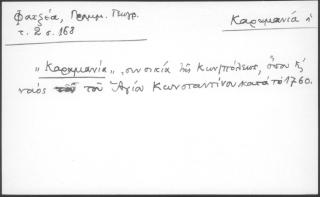 Φατζέα, Γραμμ. Γεωγρ.
τ. 2 σ. 168
Καραμανιά ἡ
"Καραμανία", συνοικία τῆς Κων/πόλεως, ὅπου κ'
ναός τοῦ Ἁγίου Κωνσταντίνου κατά τό 1760.